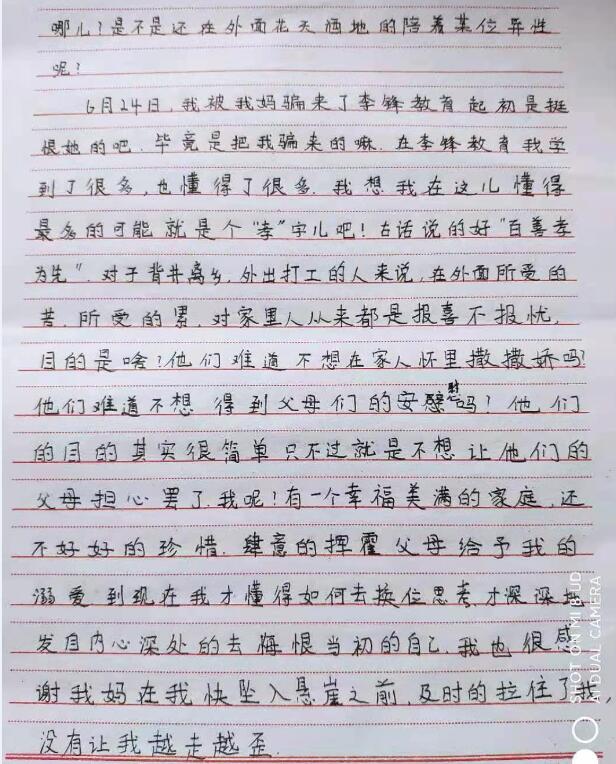 哪儿?是不是还在外面花天酒地的陪着某位异性
呢?
6月24日,我被我妈骗来了李锋教育起初是挺
恨她的吧.毕竟是把我骗来的嘛.在李锋教育我学
到了很多,也懂得了很多.我想我在这儿懂得
最多的可能就是个“孝”字儿吧!古话说的好“百善孝
为先”.对于背井离乡,外出打工的人来说,在外面所受的
苦.所受的累.对家里人从来都是报喜不报忧,
目的是啥?他们难道不想在家人怀里撒撒娇吗?
他们难道不想得到父母们的安慰吗?他们
的目的其实很简单只不过就是不想让他们的
父母担心罢了.我呢!有一个幸福美满的家庭,还
不好好的珍惜.肆意的挥霍父母给予我的
溺爱到现在我才懂得如何去换位思考,才深深地
发自内心深处的去悔恨当初的自己,我也很感
谢我妈在我快坠入悬崖之前,及时的拉住了我,
没有让我越走越歪.
SHOT ON MI 8 UD
AI DUAL CAMERA